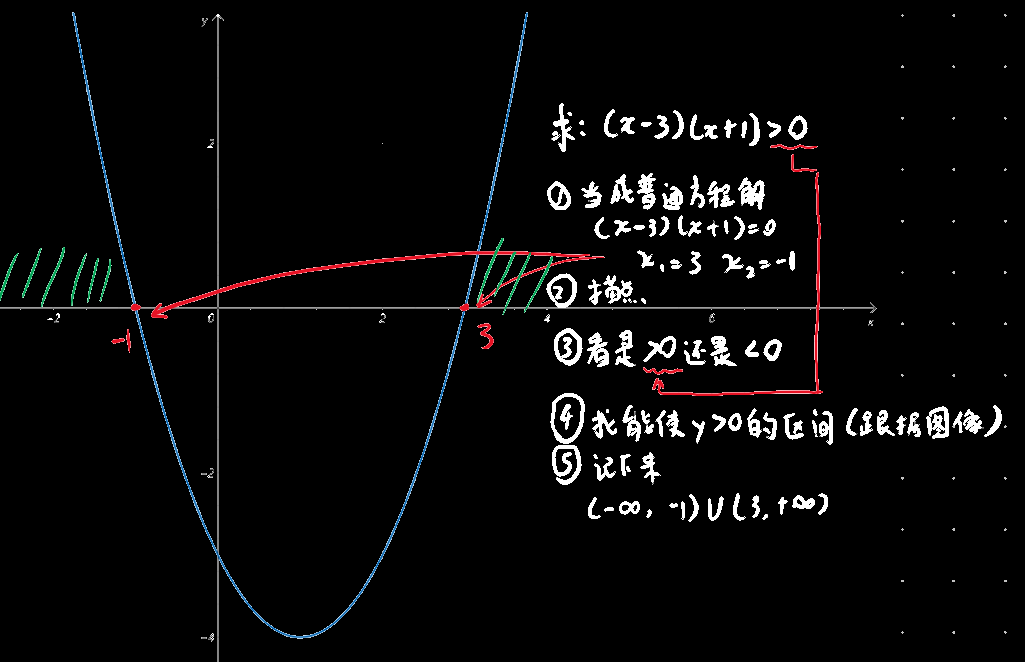 y
2
-2
0
2
4
6
x
-2
-4
-1
3
求: (x-3)(x+1)>0
① 当成普通方程解
(x-3)(x+1)=0
x₁=3 x₂=-1
② 描点、
③ 看是>0还是<0
④ 找能使y>0的区间(跟据图像).
⑤ 记下来
(-∞, -1)∪(3, +∞)